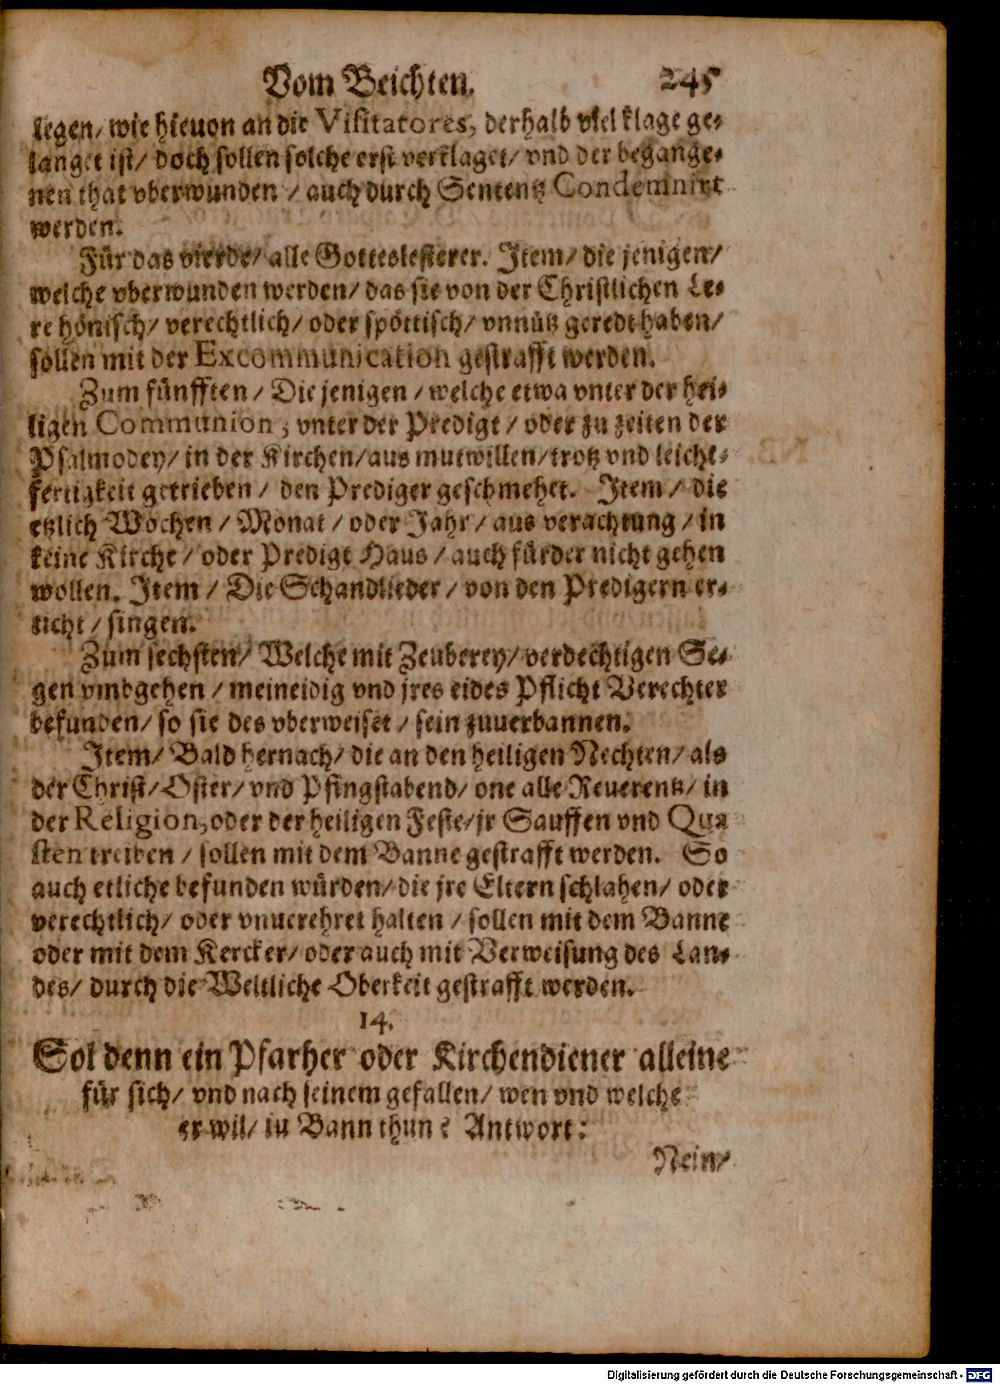 Vom Beichten. 245
legen/ wie hieuon an die Visitatores, derhalb viel klage ge-
langet ist/ doch sollen solche erst verklaget/ vnd der begange-
nen that vberwunden / auch durch Sententz Condemnirt
werden.
Für das vierde/ alle Gotteslesterer. Item/ die jenigen/
welche vberwunden werden/ das sie von der Christlichen Le-
re hönisch/ verechtlich/ oder spöttisch/ vnnütz geredt haben/
sollen mit der Excommunication gestrafft werden.
Zum fünfften / Die jenigen / welche etwa vnter der hei-
ligen Communion, vnter der Predigt / oder zu zeiten der
Psalmodey/ in der Kirchen/ aus mutwillen/ trotz vnd leicht-
fertigkeit getrieben / den Prediger geschmehet. Item / die
etzlich Wochen / Monat / oder Jahr / aus verachtung / in
keine Kirche / oder Predigt Haus / auch fürder nicht gehen
wollen. Item / Die Schandlieder / von den Predigern er-
ticht / singen.
Zum sechsten/ Welche mit Zeuberey/ verdechtigen Se-
gen vmbgehen / meineidig vnd jres eides Pflicht Verechter
befunden/ so sie des vberweiset / sein zuuerbannen.
Item/ Bald hernach/ die an den heiligen Nechten/ als
der Christ/ Oster/ vnd Pfingstabend/ one alle Reuerentz/ in
der Religion, oder der heiligen Feste/ jr Sauffen vnd Qua
sten treiben / sollen mit dem Banne gestrafft werden. So
auch etliche befunden würden/ die jre Eltern schlahen/ oder
verechtlich/ oder vnuerehret halten / sollen mit dem Banne
oder mit dem Kercker/ oder auch mit Verweisung des Lan-
des/ durch die Weltliche Oberkeit gestrafft werden.
14.
Sol denn ein Pfarher oder Kirchendiener alleine
für sich/ vnd nach seinem gefallen/ wen vnd welche
er wil/ in Bann thun? Antwort:
Nein/
Digitalisierung gefördert durch die Deutsche Forschungsgemeinschaft - DFG